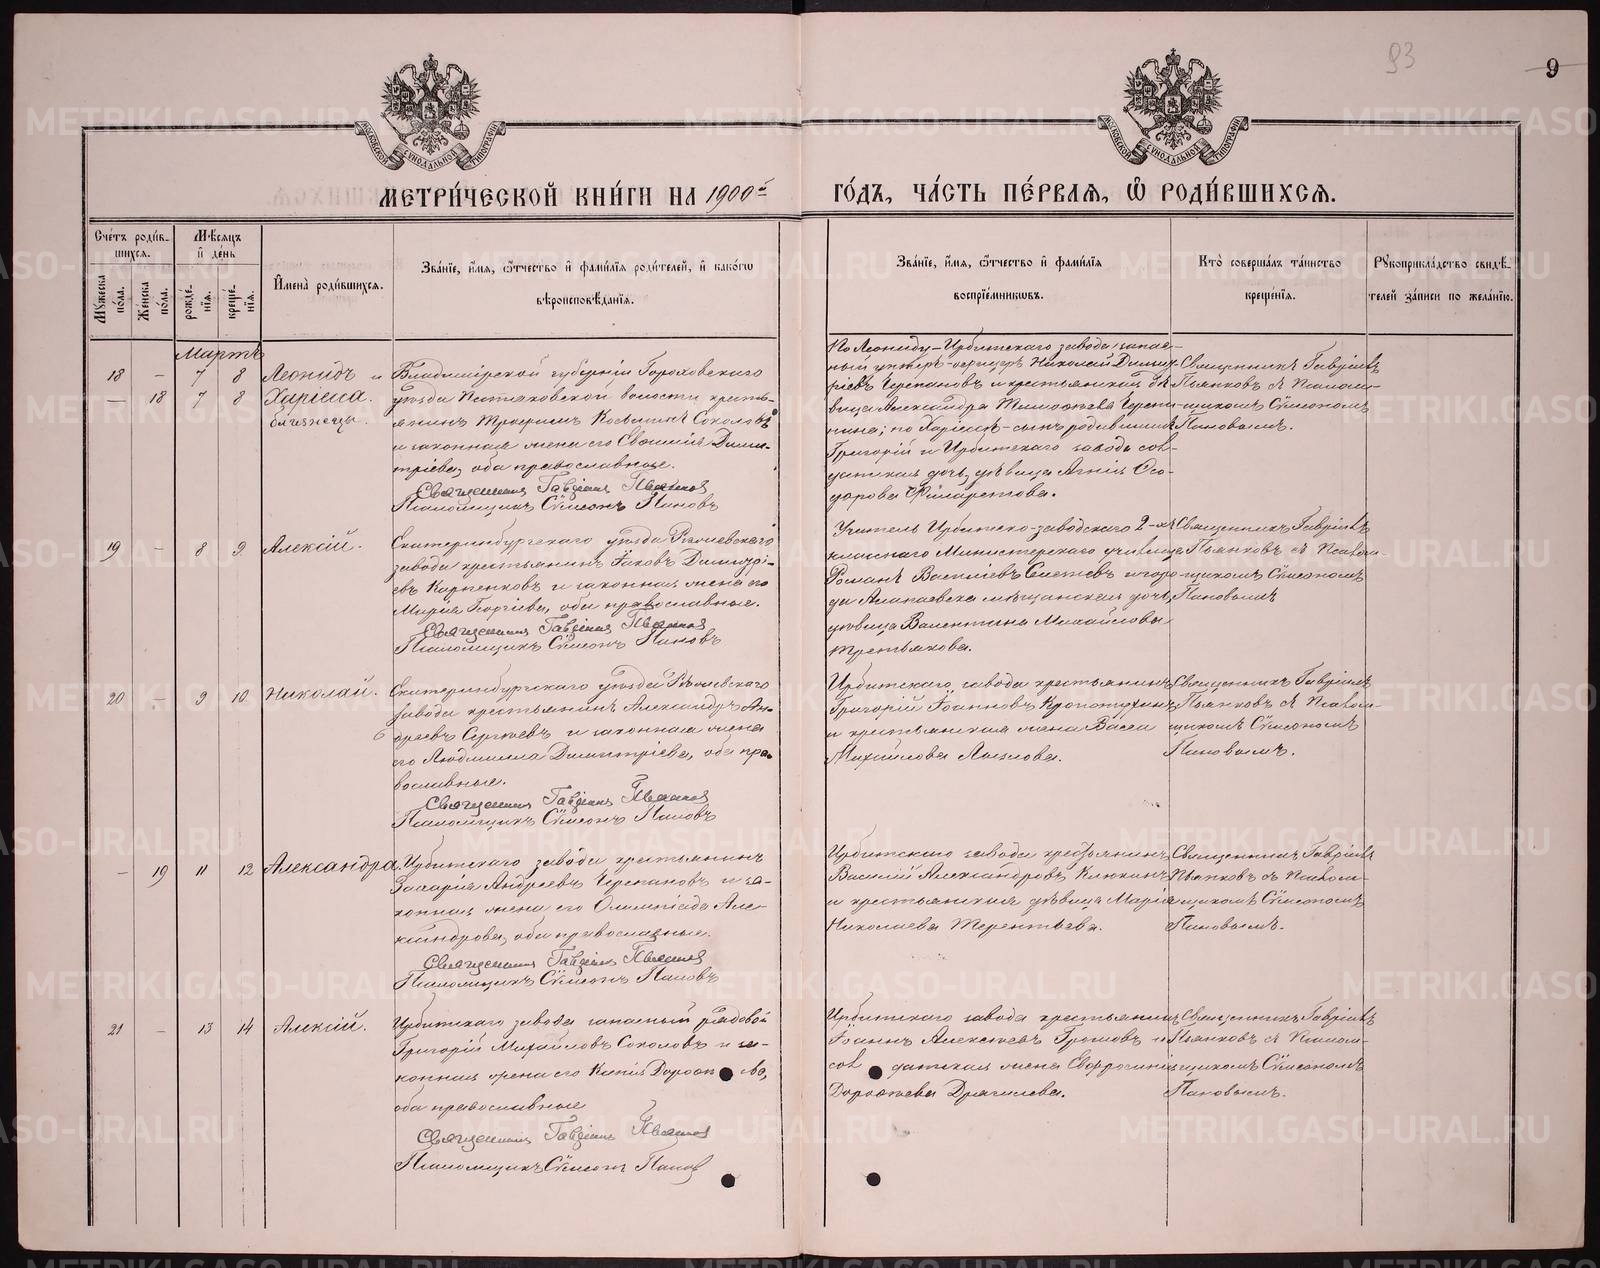 93
9
МОСКОВСКОЙ СѴНОДАЛЬНОЙ ТИПОГРАФІИ
МОСКОВСКОЙ СѴНОДАЛЬНОЙ ТИПОГРАФІИ
МЕТРИ́ЧЕСКОЙ КНИ́ГИ НА 1900й ГО́ДЪ, ЧА́СТЬ ПЕ́РВАЯ, Ѽ РОДИ́ВШИХСЯ.
Сче́тъ роди́в-
шихся.
Му́жеска по́ла.
Же́нска по́ла.
Мѣ́сяцъ
и҆ де́нь
рожде́нїя.
креще́нїя.
И҆мена̀ роди́вшихся.
Зва́нїе, и҆́мя, ѻ҆́тчество и҆ фами́лїя роди́телей, и҆ како́гѡ
вѣроисповѣ́данїя.
Зва́нїе, и҆́мя, ѻ҆́тчество и҆ фами́лїя
воспрїе́мниковъ.
Кто̀ соверша́лъ та́инство
креще́нїя.
Рꙋкоприкла́дство свидѣ́-
телей за́писи по жела́нїю.
Мартъ
18 — 7 8 Леонидъ и
— 18 7 8 Хариеса.
близнецы.
Владимірской губерніи Гороховскаго
уѣзда Кожаховской волости кресть-
янинъ Трофимъ Косьминъ Соколовъ
и законная жена его Евгенія Дими-
тріева, оба православные.
Священникъ Гавріилъ Пьянковъ
Псаломщикъ Сѵмеонъ Пановъ
По Леониду — Ирбитскаго завода запас-
ный унтеръ-офицеръ Николай Димит-
ріевъ Черепановъ и крестьянская дѣ-
вица Александра Тимофѣева Черепа-
нина; по Харіесѣ — сынъ родившихъ
Григорій и Ирбитскаго завода сол-
датская дочь, дѣвица Агнія Ѳео-
дорова Филаретова.
Священникъ Гавріилъ
Пьянковъ съ Псалом-
щикомъ Сѵмеономъ
Пановымъ.
19 — 8 9 Алексій.
Екатеринбургскаго уѣзда Режевскаго
завода крестьянинъ Іаковъ Димитрі-
евъ Карпенковъ и законная жена его
Марія Георгіева, оба православные.
Священникъ Гавріилъ Пьянковъ
Псаломщикъ Сѵмеонъ Пановъ
Учитель Ирбитско-заводскаго 2-хъ
класснаго Министерскаго училища
Романъ Васильевъ и горо-
да Алапаевска мѣщанская дочь,
дѣвица Валентина Михайлова
Третьякова.
Священникъ Гавріилъ
Пьянковъ съ Псалом-
щикомъ Сѵмеономъ
Пановымъ
20 — 9 10 Николай.
Екатеринбургскаго уѣзда Режевскаго
завода крестьянинъ Александръ Ан-
дреевъ Сергѣевъ и законная жена
его Людмила Димитріева, оба пра-
вославные.
Священникъ Гавріилъ Пьянковъ
Псаломщикъ Сѵмеонъ Пановъ
Ирбитскаго завода крестьянинъ
Григорій Іоанновъ Кропотухинъ
и крестьянская жена Васса
Михайлова
Священникъ Гавріилъ
Пьянковъ съ Псалом-
щикомъ Сѵмеономъ
Пановымъ.
— 19 11 12 Александра.
Ирбитскаго завода крестьянинъ
Захарія Андреевъ Черепановъ и за-
конная жена его Олимпіада Алек-
сандрова, оба православные.
Священникъ Гавріилъ Пьянковъ
Псаломщикъ Сѵмеонъ Пановъ
Ирбитскаго завода крестьянинъ
Василій Александровъ Клюкинъ
и крестьянская дѣвица Марія
Николаева Терентьева.
Священникъ Гавріилъ
Пьянковъ съ Псалом-
щикомъ Сѵмеономъ
Пановымъ.
21 — 13 14 Алексій.
Ирбитскаго завода запасный рядовой
Григорій Михайловъ Соколовъ и за-
конная жена его Ксенія
оба православные
Священникъ Гавріилъ Пьянковъ
Псаломщикъ Сѵмеонъ Пановъ
Ирбитскаго завода крестьянинъ
Іоаннъ Алексѣевъ и
солдатская жена Евфросинія
Дороѳеева
Священникъ Гавріилъ
Пьянковъ съ Псалом-
щикомъ Сѵмеономъ
Пановымъ.
METRIKI.GASO-URAL.RU